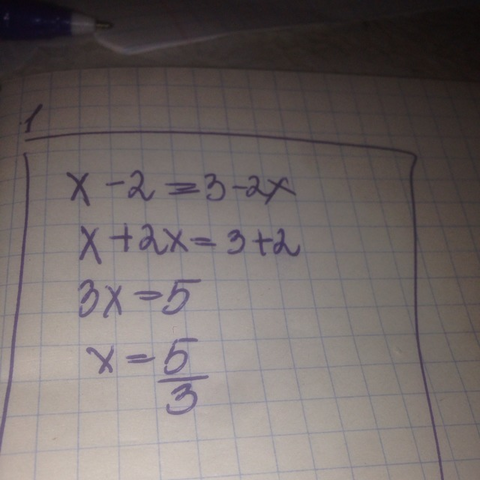 1
x - 2 = 3 - 2x
x + 2x = 3 + 2
3x = 5
x = 5/3